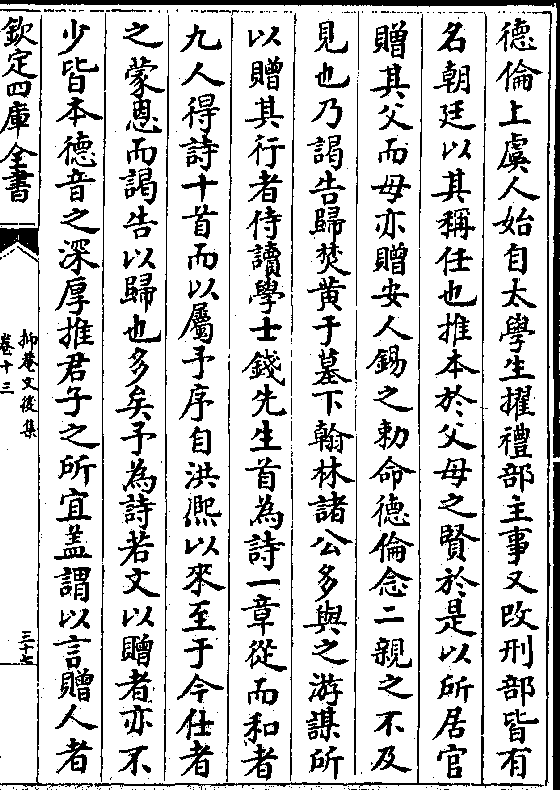 德倫上虞人始自太學生擢禮部主事又改刑部皆有
名朝廷以其稱任也推本於父母之賢於是以所居官
贈其父而母亦贈安人錫之勅命德倫念二親之不及
見也乃謁告歸焚黄于墓下翰林諸公多與之游謀所
以贈其行者侍讀學士錢先生首為詩一章從而和者
九人得詩十首而以屬予序自洪熈以來至于今仕者
之蒙恩而謁告以歸也多矣予為詩若文以贈者亦不
少皆本德音之深厚推君子之所宜盖謂以言贈人者
欽定四庫全書
抑菴文後集
卷十三
三十七